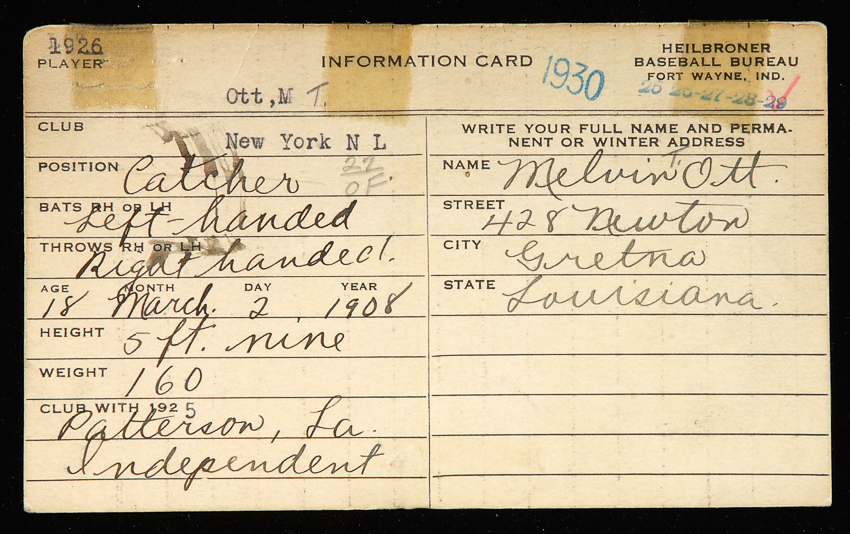 1926
PLAYER
INFORMATION CARD
1930
HEILBRONER
BASEBALL BUREAU
FORT WAYNE, IND.
25 26-27-28-29
Ott,M T.
CLUB
New York N L
POSITION Catcher
22
OF
BATS RH OR LH
Left-handed
THROWS RH OR LH
Right handed.
AGE MONTH DAY YEAR
18 March. 2 1908
HEIGHT 5 ft. nine
WEIGHT 160
CLUB WITH 1925
Patterson, La.
Independent
WRITE YOUR FULL NAME AND PERMA-
NENT OR WINTER ADDRESS
NAME Melvin T. Ott.
STREET 428 Newton
CITY Gretna
STATE Louisiana.